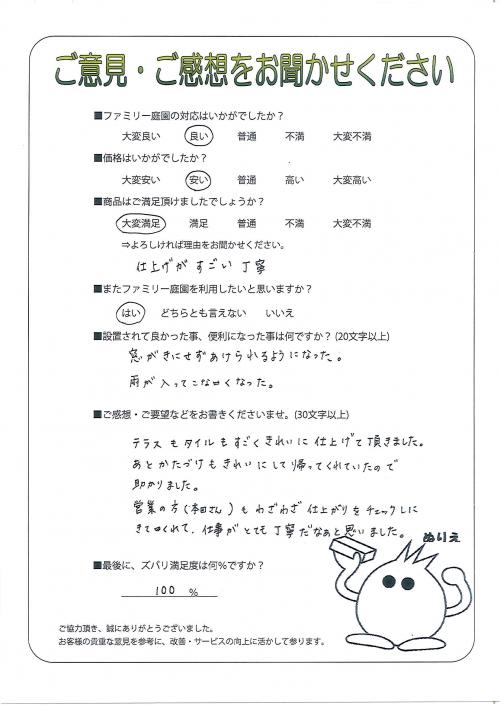 ご意見・ご感想をお聞かせください
■ファミリー庭園の対応はいかがでしたか？
大変良い 良い 普通 不満 大変不満
■価格はいかがでしたか？
大変安い 安い 普通 高い 大変高い
■商品はご満足頂けましたでしょうか？
大変満足 満足 普通 不満 大変不満
⇒よろしければ理由をお聞かせください。
仕上げがすごい丁寧
■またファミリー庭園を利用したいと思いますか？
はい どちらとも言えない いいえ
■設置されて良かった事、便利になった事は何ですか？(20文字以上)
窓がきにせずあけられるようになった。
雨が入ってこなくなった。
■ご感想・ご要望などをお書きくださいませ。(30文字以上)
テラスもタイルもすごくきれいに仕上げて頂きました。
あとかたづけもきれいにして帰ってくれていたので
助かりました。
営業の方(本田さん)もわざわざ仕上がりをチェックしに
きてくれて、仕事がとても丁寧だなぁと思いました。
ぬりえ
■最後に、ズバリ満足度は何％ですか？
100 %
ご協力頂き、誠にありがとうございました。
お客様の貴重な意見を参考に、改善・サービスの向上に活かして参ります。